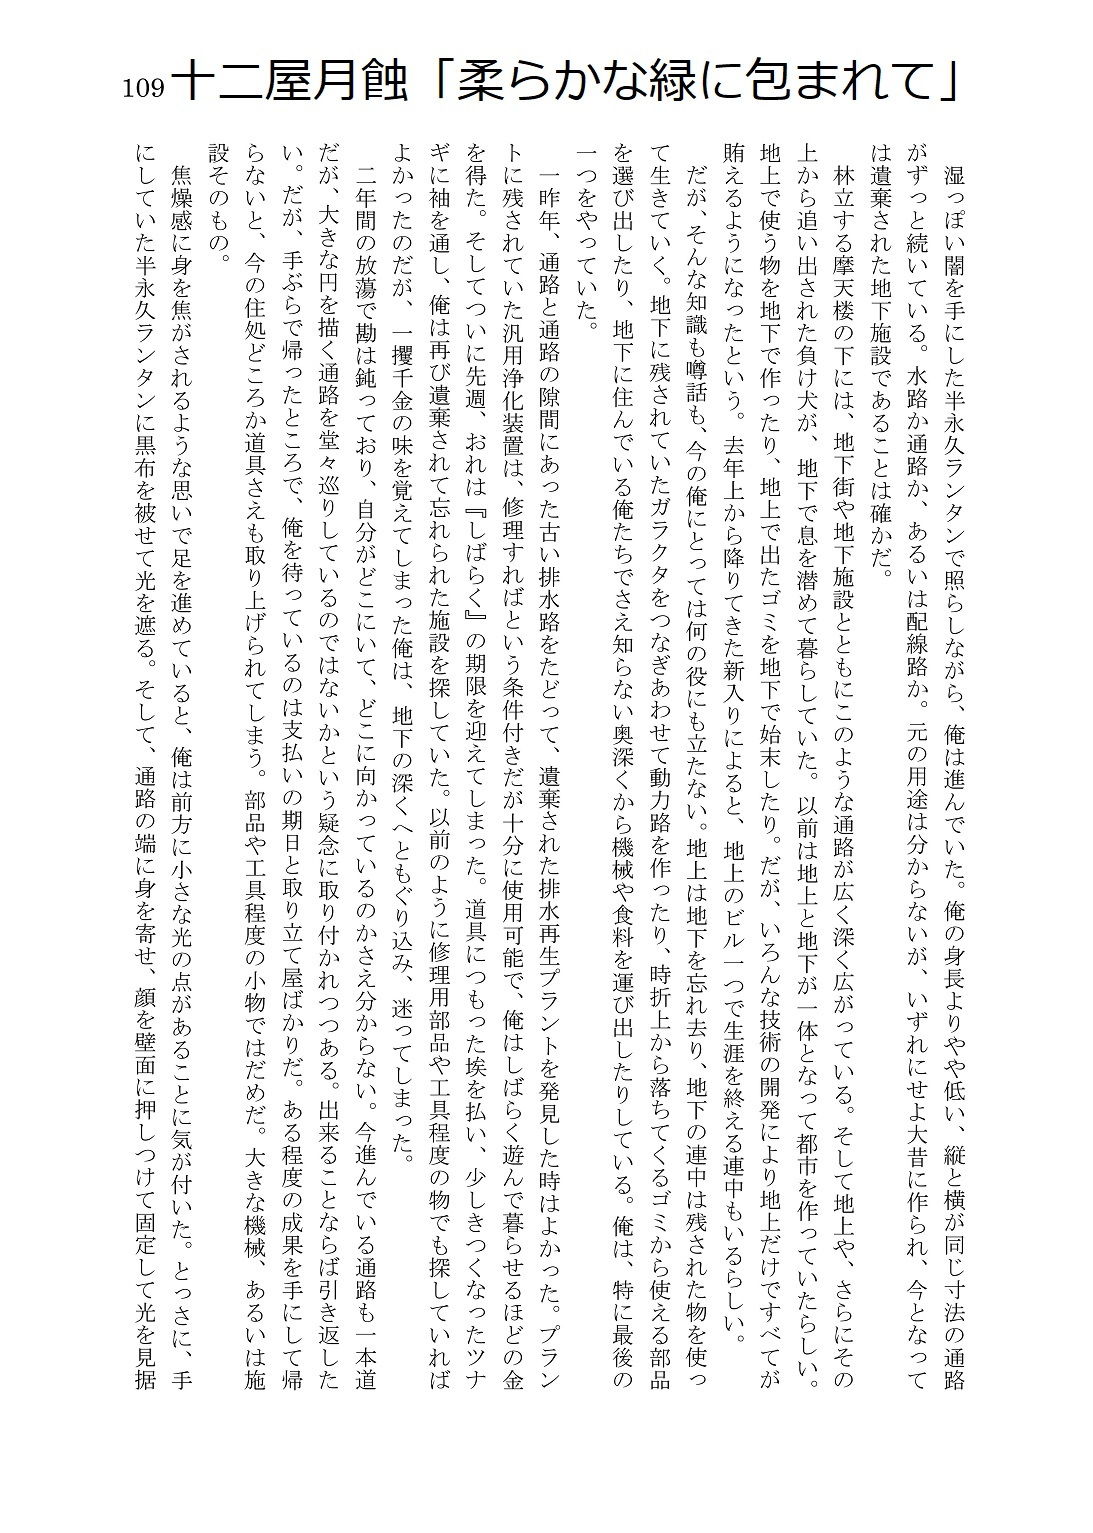 109 十二屋月蝕「柔らかな緑に包まれて」
　湿っぽい闇を手にした半永久ランタンで照らしながら、俺は進んでいた。俺の身長よりやや低い、縦と横が同じ寸法の通路
がずっと続いている。水路か通路か、あるいは配線路か。元の用途は分からないが、いずれにせよ大昔に作られ、今となって
は遺棄された地下施設であることは確かだ。
　林立する摩天楼の下には、地下街や地下施設とともにこのような通路が広く深く広がっている。そして地上や、さらにその
上から追い出された負け犬が、地下で息を潜めて暮らしていた。以前は地上と地下が一体となって都市を作っていたらしい。
地上で使う物を地下で作ったり、地上で出たゴミを地下で始末したり。だが、いろんな技術の開発により地上だけですべてが
賄えるようになったという。去年上から降りてきた新入りによると、地上のビル一つで生涯を終える連中もいるらしい。
　だが、そんな知識も噂話も、今の俺にとっては何の役にも立たない。地上は地下を忘れ去り、地下の連中は残された物を使っ
て生きていく。地下に残されていたガラクタをつなぎあわせて動力路を作ったり、時折上から落ちてくるゴミから使える部品
を選び出したり、地下に住んでいる俺たちでさえ知らない奥深くから機械や食料を運び出したりしている。俺は、特に最後の
一つをやっていた。
　一昨年、通路と通路の隙間にあった古い排水路をたどって、遺棄された排水再生プラントを発見した時はよかった。プラン
トに残されていた汎用浄化装置は、修理すればという条件付きだが十分に使用可能で、俺はしばらく遊んで暮らせるほどの金
を得た。そしてついに先週、おれは『しばらく』の期限を迎えてしまった。道具につもった埃を払い、少しきつくなったツナ
ギに袖を通し、俺は再び遺棄されて忘れられた施設を探していた。以前のように修理用部品や工具程度の物でも探していれば
よかったのだが、一攫千金の味を覚えてしまった俺は、地下の深くへともぐり込み、迷ってしまった。
　二年間の放蕩で勘は鈍っており、自分がどこにいて、どこに向かっているのかさえ分からない。今進んでいる通路も一本道
だが、大きな円を描く通路を堂々巡りしているのではないかという疑念に取り付かれつつある。出来ることならば引き返した
い。だが、手ぶらで帰ったところで、俺を待っているのは支払いの期日と取り立て屋ばかりだ。ある程度の成果を手にして帰
らないと、今の住処どころか道具さえも取り上げられてしまう。部品や工具程度の小物ではだめだ。大きな機械、あるいは施
設そのもの。
　焦燥感に身を焦がされるような思いで足を進めていると、俺は前方に小さな光の点があることに気が付いた。とっさに、手
にしていた半永久ランタンに黒布を被せて光を遮る。そして、通路の端に身を寄せ、顔を壁面に押しつけて固定して光を見据